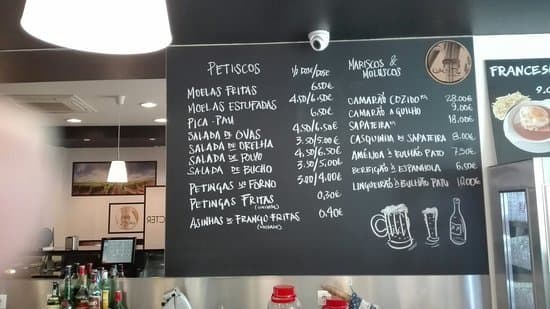 PETISCOS ½ DOSE/DOSE
MOELAS FRITAS 6.50€
MOELAS ESTUFADAS 4.50/6.50€
PICA-PAU 6.50€
SALADA DE OVAS 4.50/6.50€
SALADA DE ORELHA 3.50/5.00€
SALADA DE POLVO 4.50/6.50€
SALADA DE BUCHO 3.50/5.00€
PETINGAS NO FORNO 3.00/4.00€
PETINGAS FRITAS 0,30€
(UNIDADE)
ASINHAS DE FRANGO FRITAS 0.40€
(UNIDADE)
MARISCOS &
MOLUSCOS
CAMARÃO COZIDO 28.00€
CAMARÃO A GUILHO 9.00€
SAPATEIRA 18.00€
CASQUINHA DE SAPATEIRA 8.00€
AMÊIJOA À BULHÃO PATO 7.50€
BERBIGÃO À ESPANHOLA 6,00€
LINGUEIRÃO À BULHÃO PATO 10.00€
FRANCES
9.0
CTER